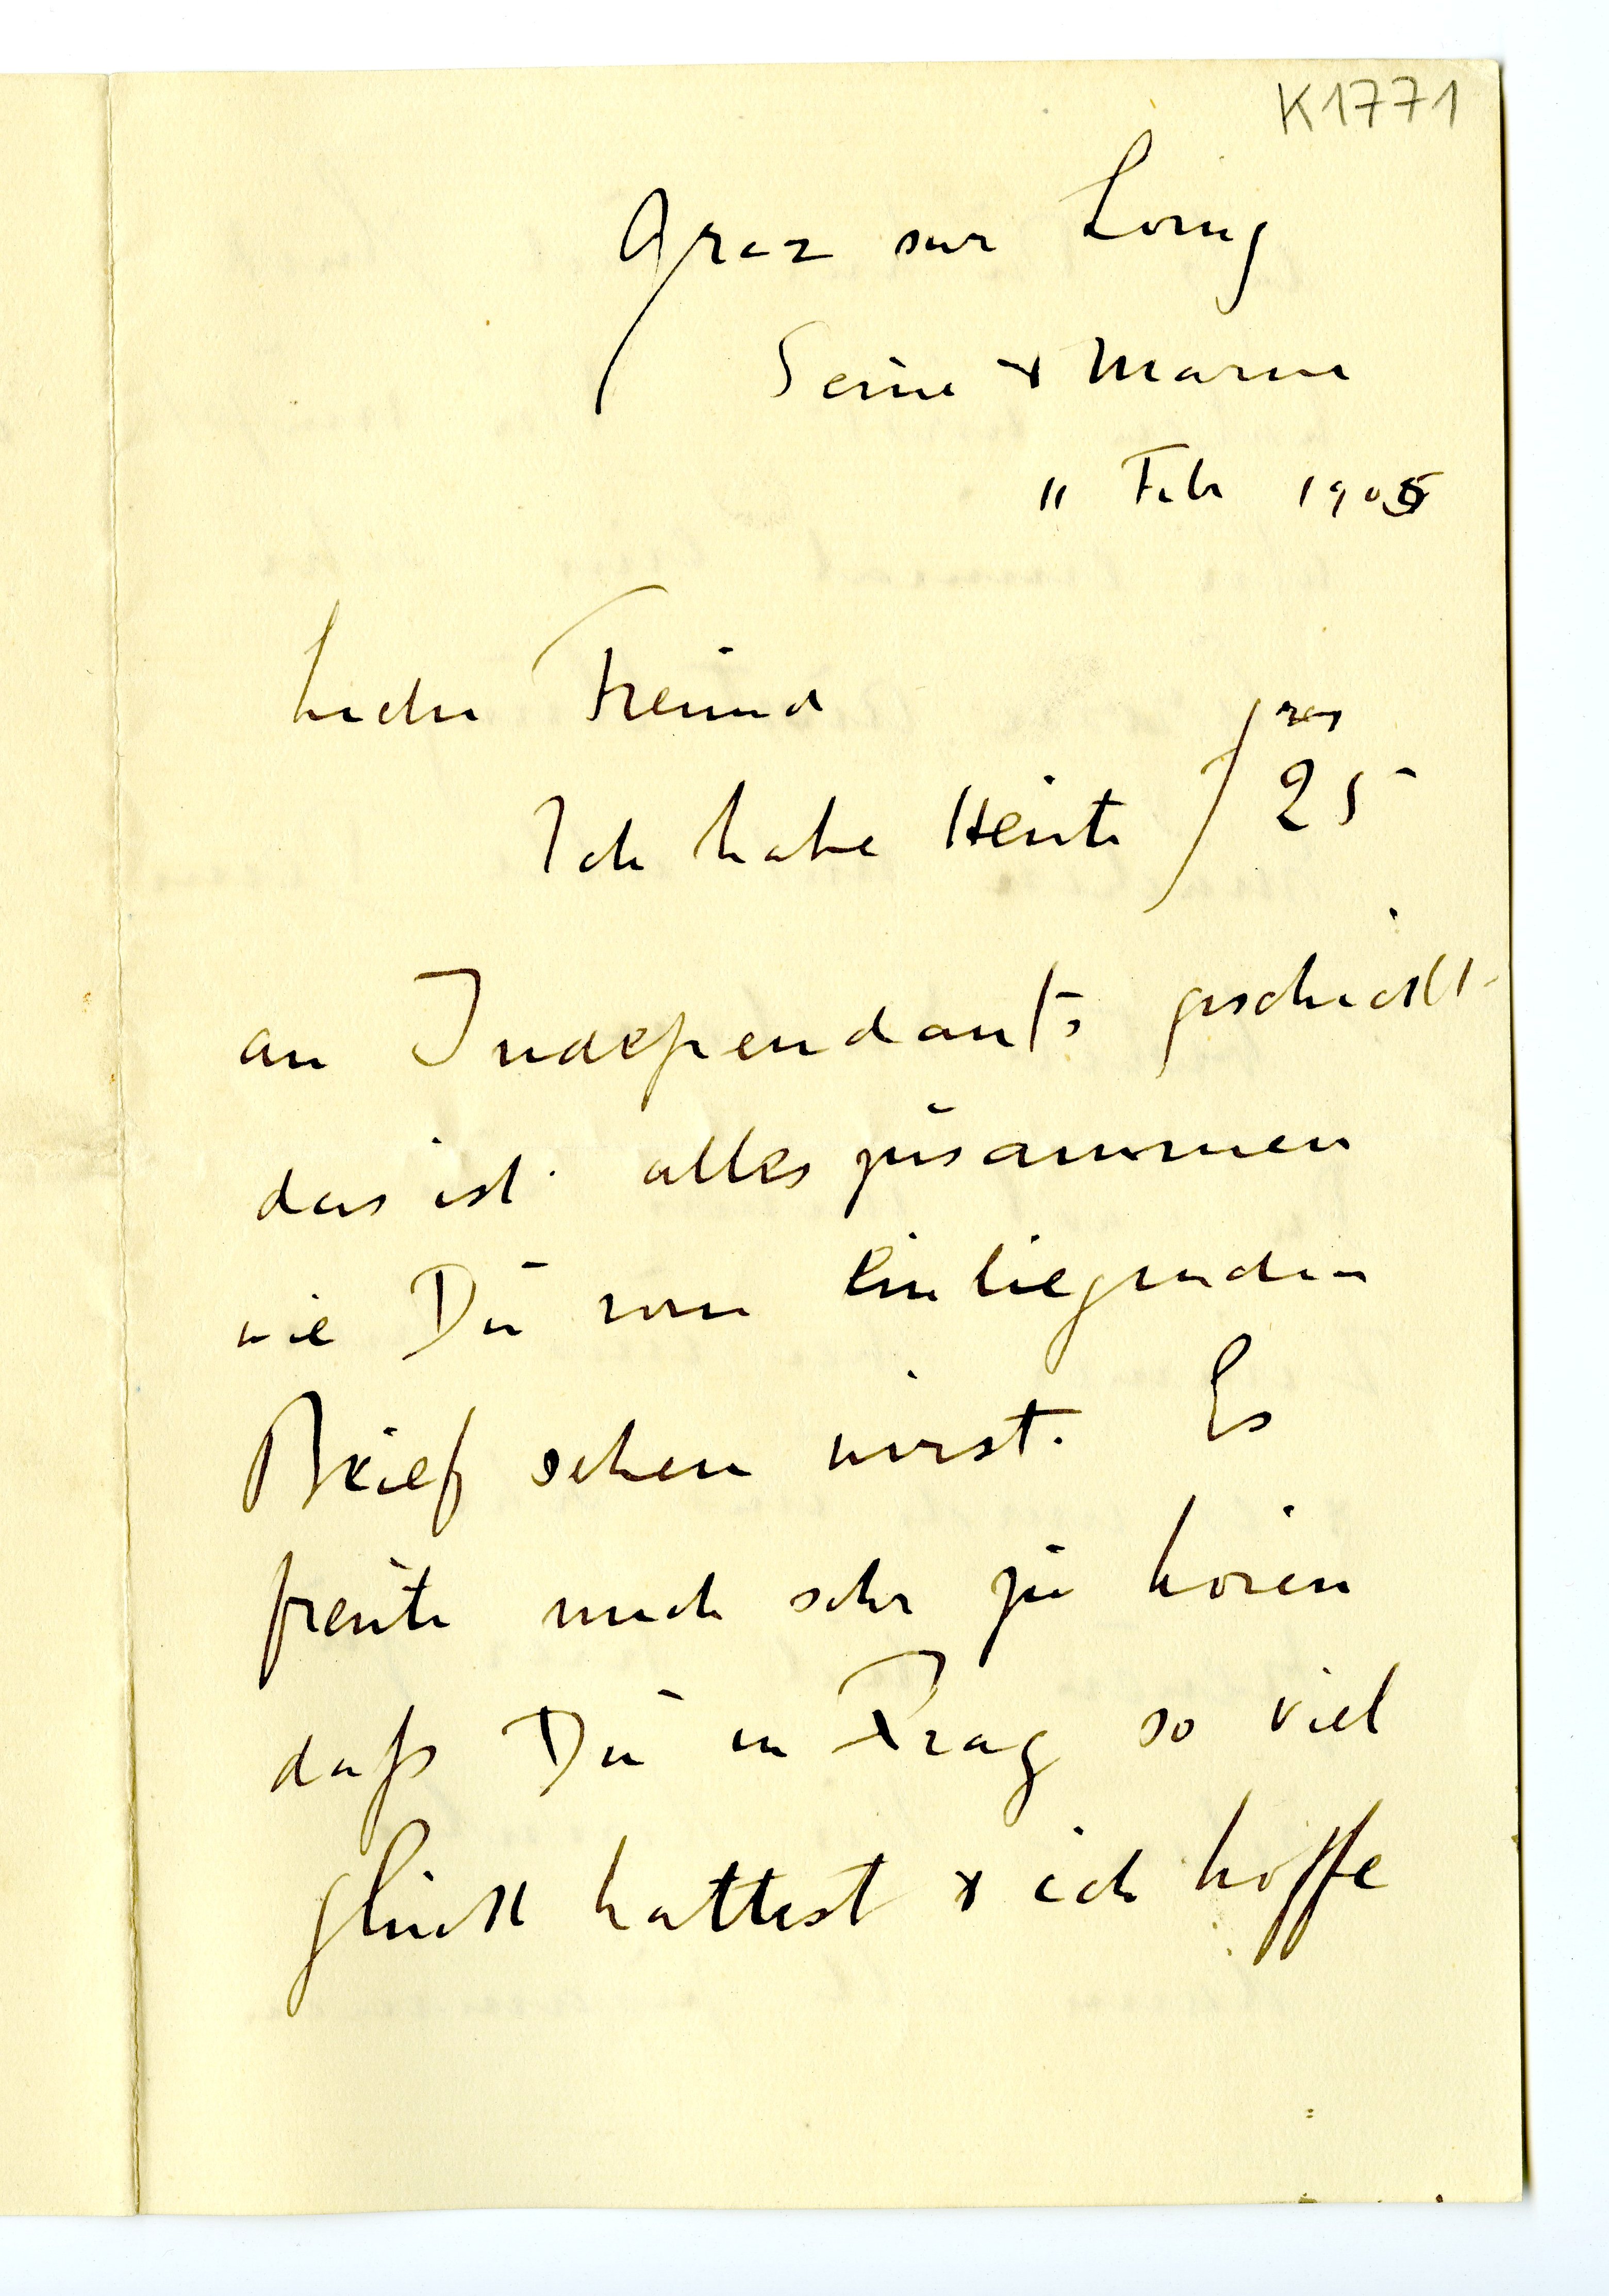 K1771
Grez sur Loing
Seine & Marne
11 Feb 1905
Lieber Freund
Ich habe Heute frcs 25
an Independants geschickt
das ist alles zusammen
wie Du vom Einliegenden
Brief sehen wirst. Es
freute mich sehr zu hören
daß Du in Prag so viel
glück hattest & ich hoffe